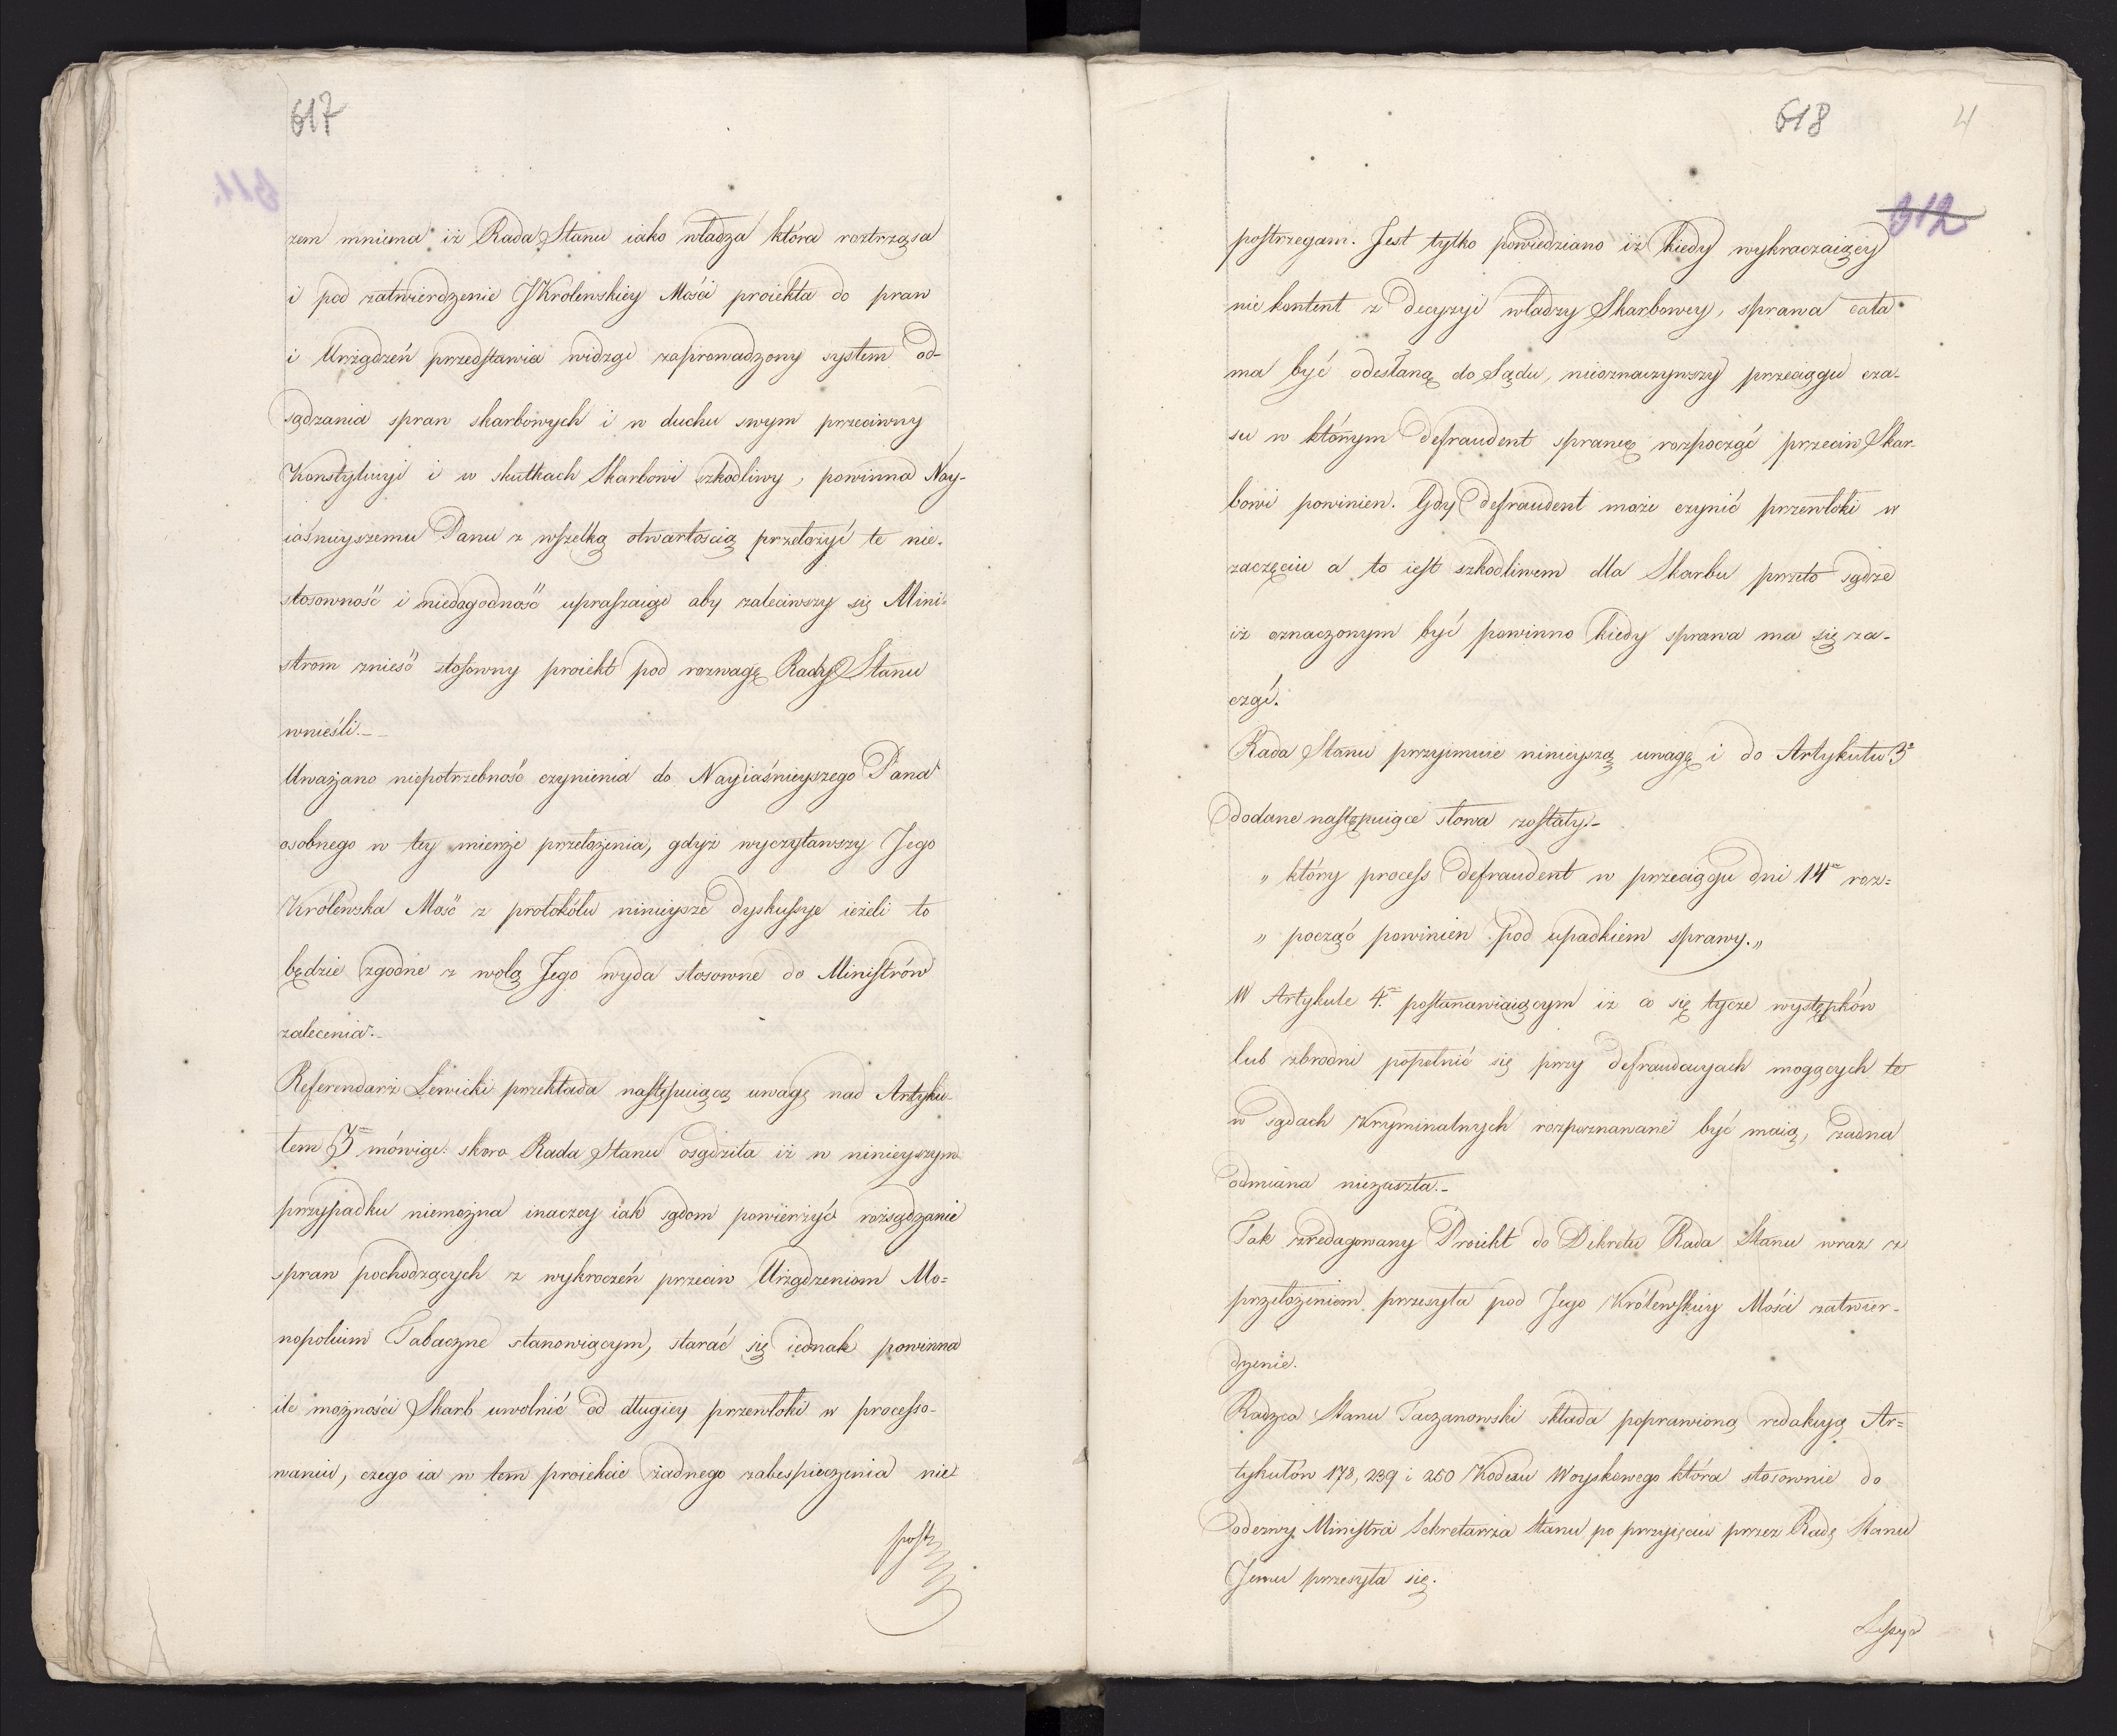 617
zem mniema iż Rada Stanu iako władza która roztrząsa
i pod zatwierdzenie JKrólewskiey Mości proiekta do praw
i Urządzeń przedstawia widząc zaprowadzony system od-
sądzania spraw skarbowych i w duchu swym przeciwny
Konstytucyi i w skutkach Skarbowi szkodliwy, powinna Nay-
iaśnieyszemu Panu z wszelką otwartością przełożyć te nie-
stosowność i niedogodność upraszaiąc aby zaleciwszy się Mini-
strom znieść stosowny proiekt pod rozwagę Rady Stanu
wnieśli.
Uważano niepotrzebność czynienia do Nayiaśnieyszego Pana
osobnego w tey mierze przełożenia, gdyż wyczytawszy Jego
Królewska Mość z protokółu ninieysze dyskussye ieżeli to
będzie zgodne z wolą Jego wyda stosowne do Ministrów
zalecenia.
Referendarz Lewicki przekłada następuiącą uwagę nad Artyku-
łem 3m mówiąc: skoro Rada Stanu osądziła iż w ninieyszym
przypadku niemożna inaczey iak sądom powierzyć rozsądzanie
spraw pochodzących z wykroczeń przeciw Urządzeniom Mo=
nopolium Tabaczne stanowiącym, starać się iednak powinna
ile możności Skarb uwolnić od długiey przewłoki w processo-
waniu, czego ia w tem proiekcie żadnego zabespieczenia nie
postrz
618
4
312
postrzegam. Jest tylko powiedziano iż kiedy wykraczaiący
nie kontent z decyzyi władzy Skarbowey, sprawa cała
ma być odesłaną do Sądu, nieoznaczywszy przeciągu cza-
su w którym defraudent sprawę rozpocząć przeciw Skar-
bowi powinien. Gdy defraudent może czynić przewłoki w
zaczęciu a to iest szkodliwem dla Skarbu przeto sądzę
iż oznaczonym być powinno kiedy sprawa ma się za-
cząć.
Rada Stanu przyimuie ninieyszą uwagę i do Artykułu 3o
dodane następuiące słowa zostały.
„ który process defraudent w przeciągu dni 14 roz=
„ począć powinien pod upadkiem sprawy.„
W Artykule 4m postanawiaiącym iż co się tycze występków
lub zbrodni popełnić się przy defraudacyach mogących te
w sądach Kryminalnych rozpoznawane być maią, żadna
odmiana niezaszła.
Tak zredagowany Proiekt do Dekretu Rada Stanu wraz z
przełożeniem przesyła pod Jego Królewskiey Mości zatwier-
dzenie.
Radzca Stanu Taczanowski składa poprawioną redakcyą Ar=
tykułów 178, 239 i 250 Kodexu Woyskowego która stosownie do
odezwy Ministra Sekretarza Stanu po przyięciu przez Radę Stanu
Jemu przesyła się.